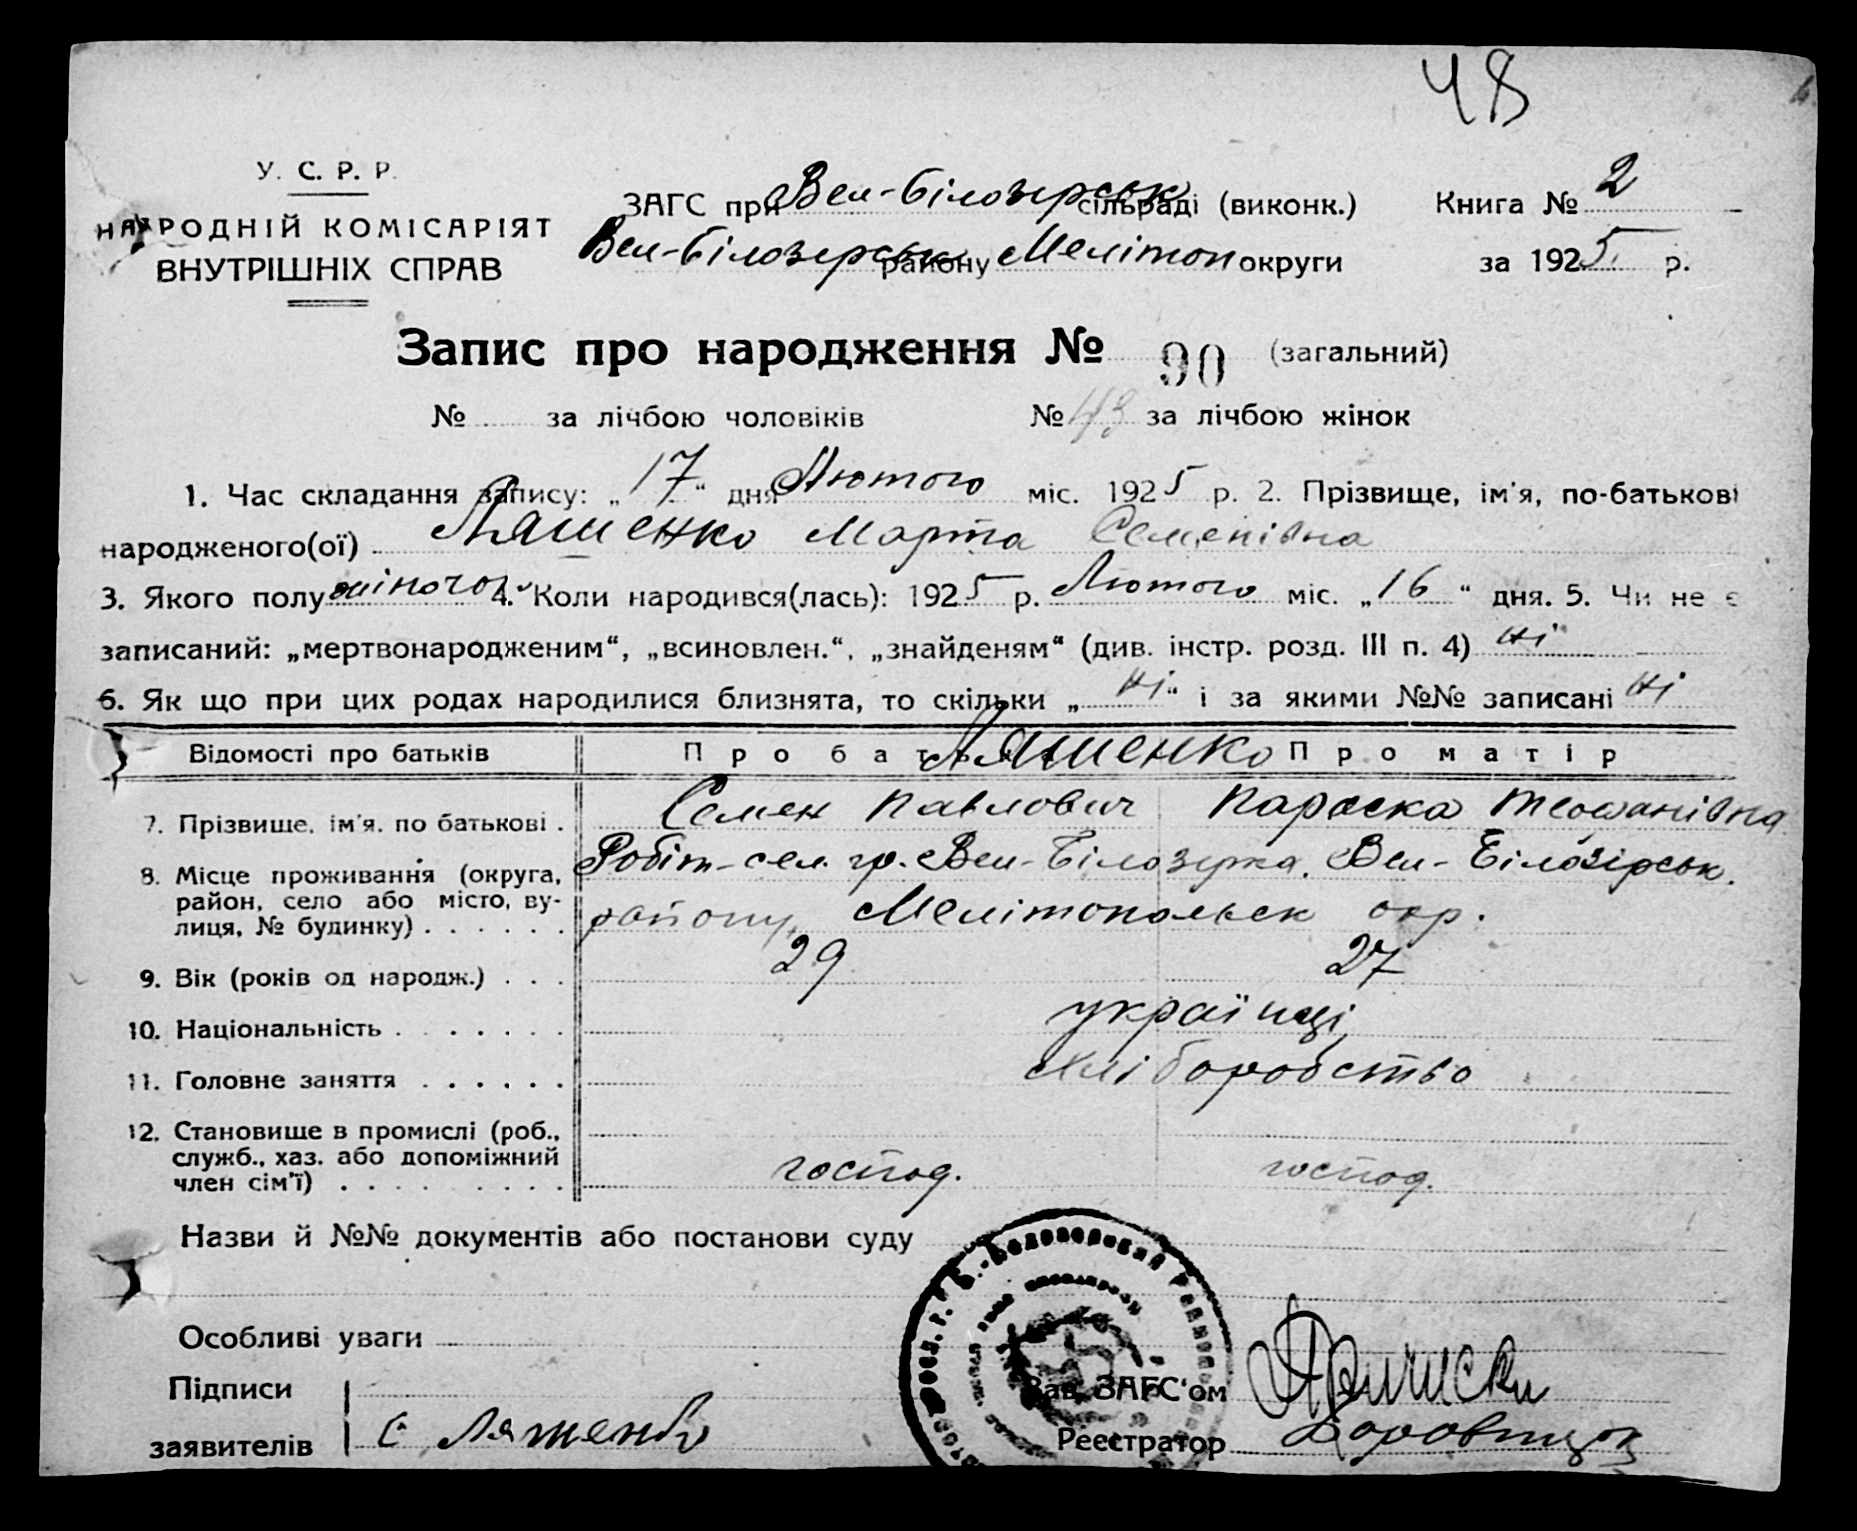 48
У. С. Р. Р.
НАРОДНІЙ КОМІСАРІЯТ
ВНУТРІШНІХ СПРАВ
ЗАГС при Вел-Білозерськ сільраді (виконк.) Книга № 2
Вел-Білозерськ району Мелітоп округи за 1925 р.
Запис про народження № 90 (загальний)
№ за лічбою чоловіків № 43 за лічбою жінок
1. Час складання запису: „17“ дня Лютого міс. 1925 р. 2. Прізвище, ім'я, по-батькові
народженого(ої) Ляшенко Марта Семенівна
3. Якого полу жіночої 4. Коли народився(лась): 1925 р. Лютого міс. „16“ дня. 5. Чи не є
записаний: „мертвонародженим“, „всиновлен.“, „знайденям“ (див. інстр. розд. III п. 4) ні
6. Як що при цих родах народилися близнята, то скільки „ні“ і за якими №№ записані ні
Відомості про батьків Про батька Ляшенко Про матір
7. Прізвище, ім'я, по батькові . Семен Павлович Параска
8. Місце проживання (округа, Робіт-сел. гр. Вел-Білозерка. Вел-Білозірськ.
район, село або місто, ву-
лиця, № будинку) . . . . . . району, Мелітопольск окр.
9. Вік (років од народж.) . . . 29 27
10. Національність . . . . . . . українці
11. Головне заняття . . . . . . хліборобство
12. Становище в промислі (роб.,
служб., хаз. або допоміжний
член сім'ї) . . . . . . . . . господ. господ.
Назви й №№ документів або постанови суду
Особливі уваги
Підписи
заявителів С Ляшенко
Зав. ЗАГС'ом
Реєстратор